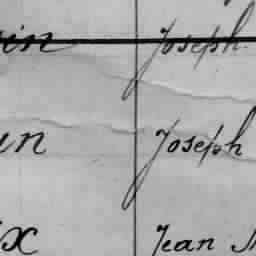 in Joseph
un Joseph
x Jean